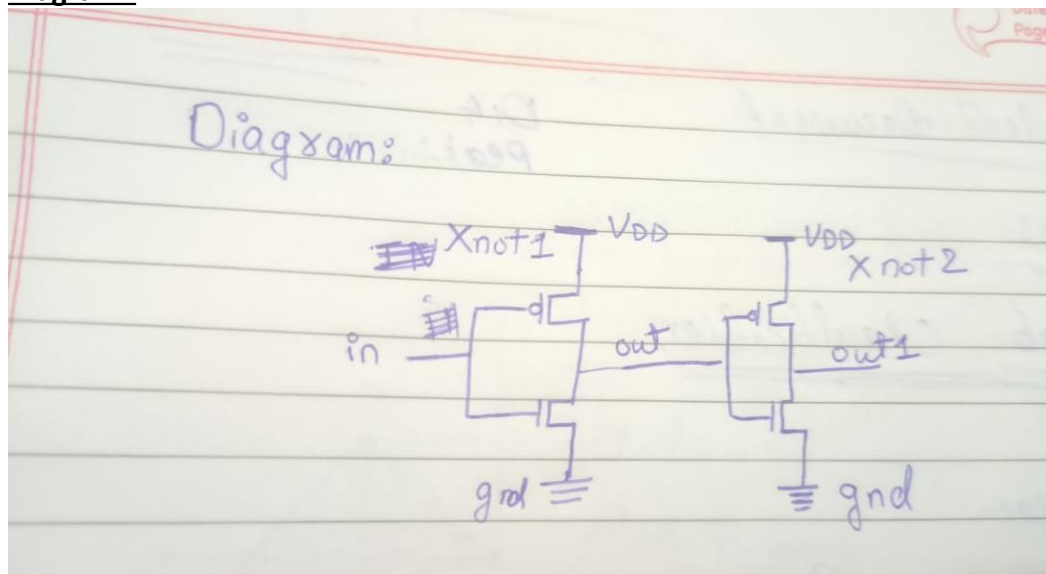 Page
Diagram:
Xnot1 VDD VDD
Xnot2
in out out1
gnd gnd